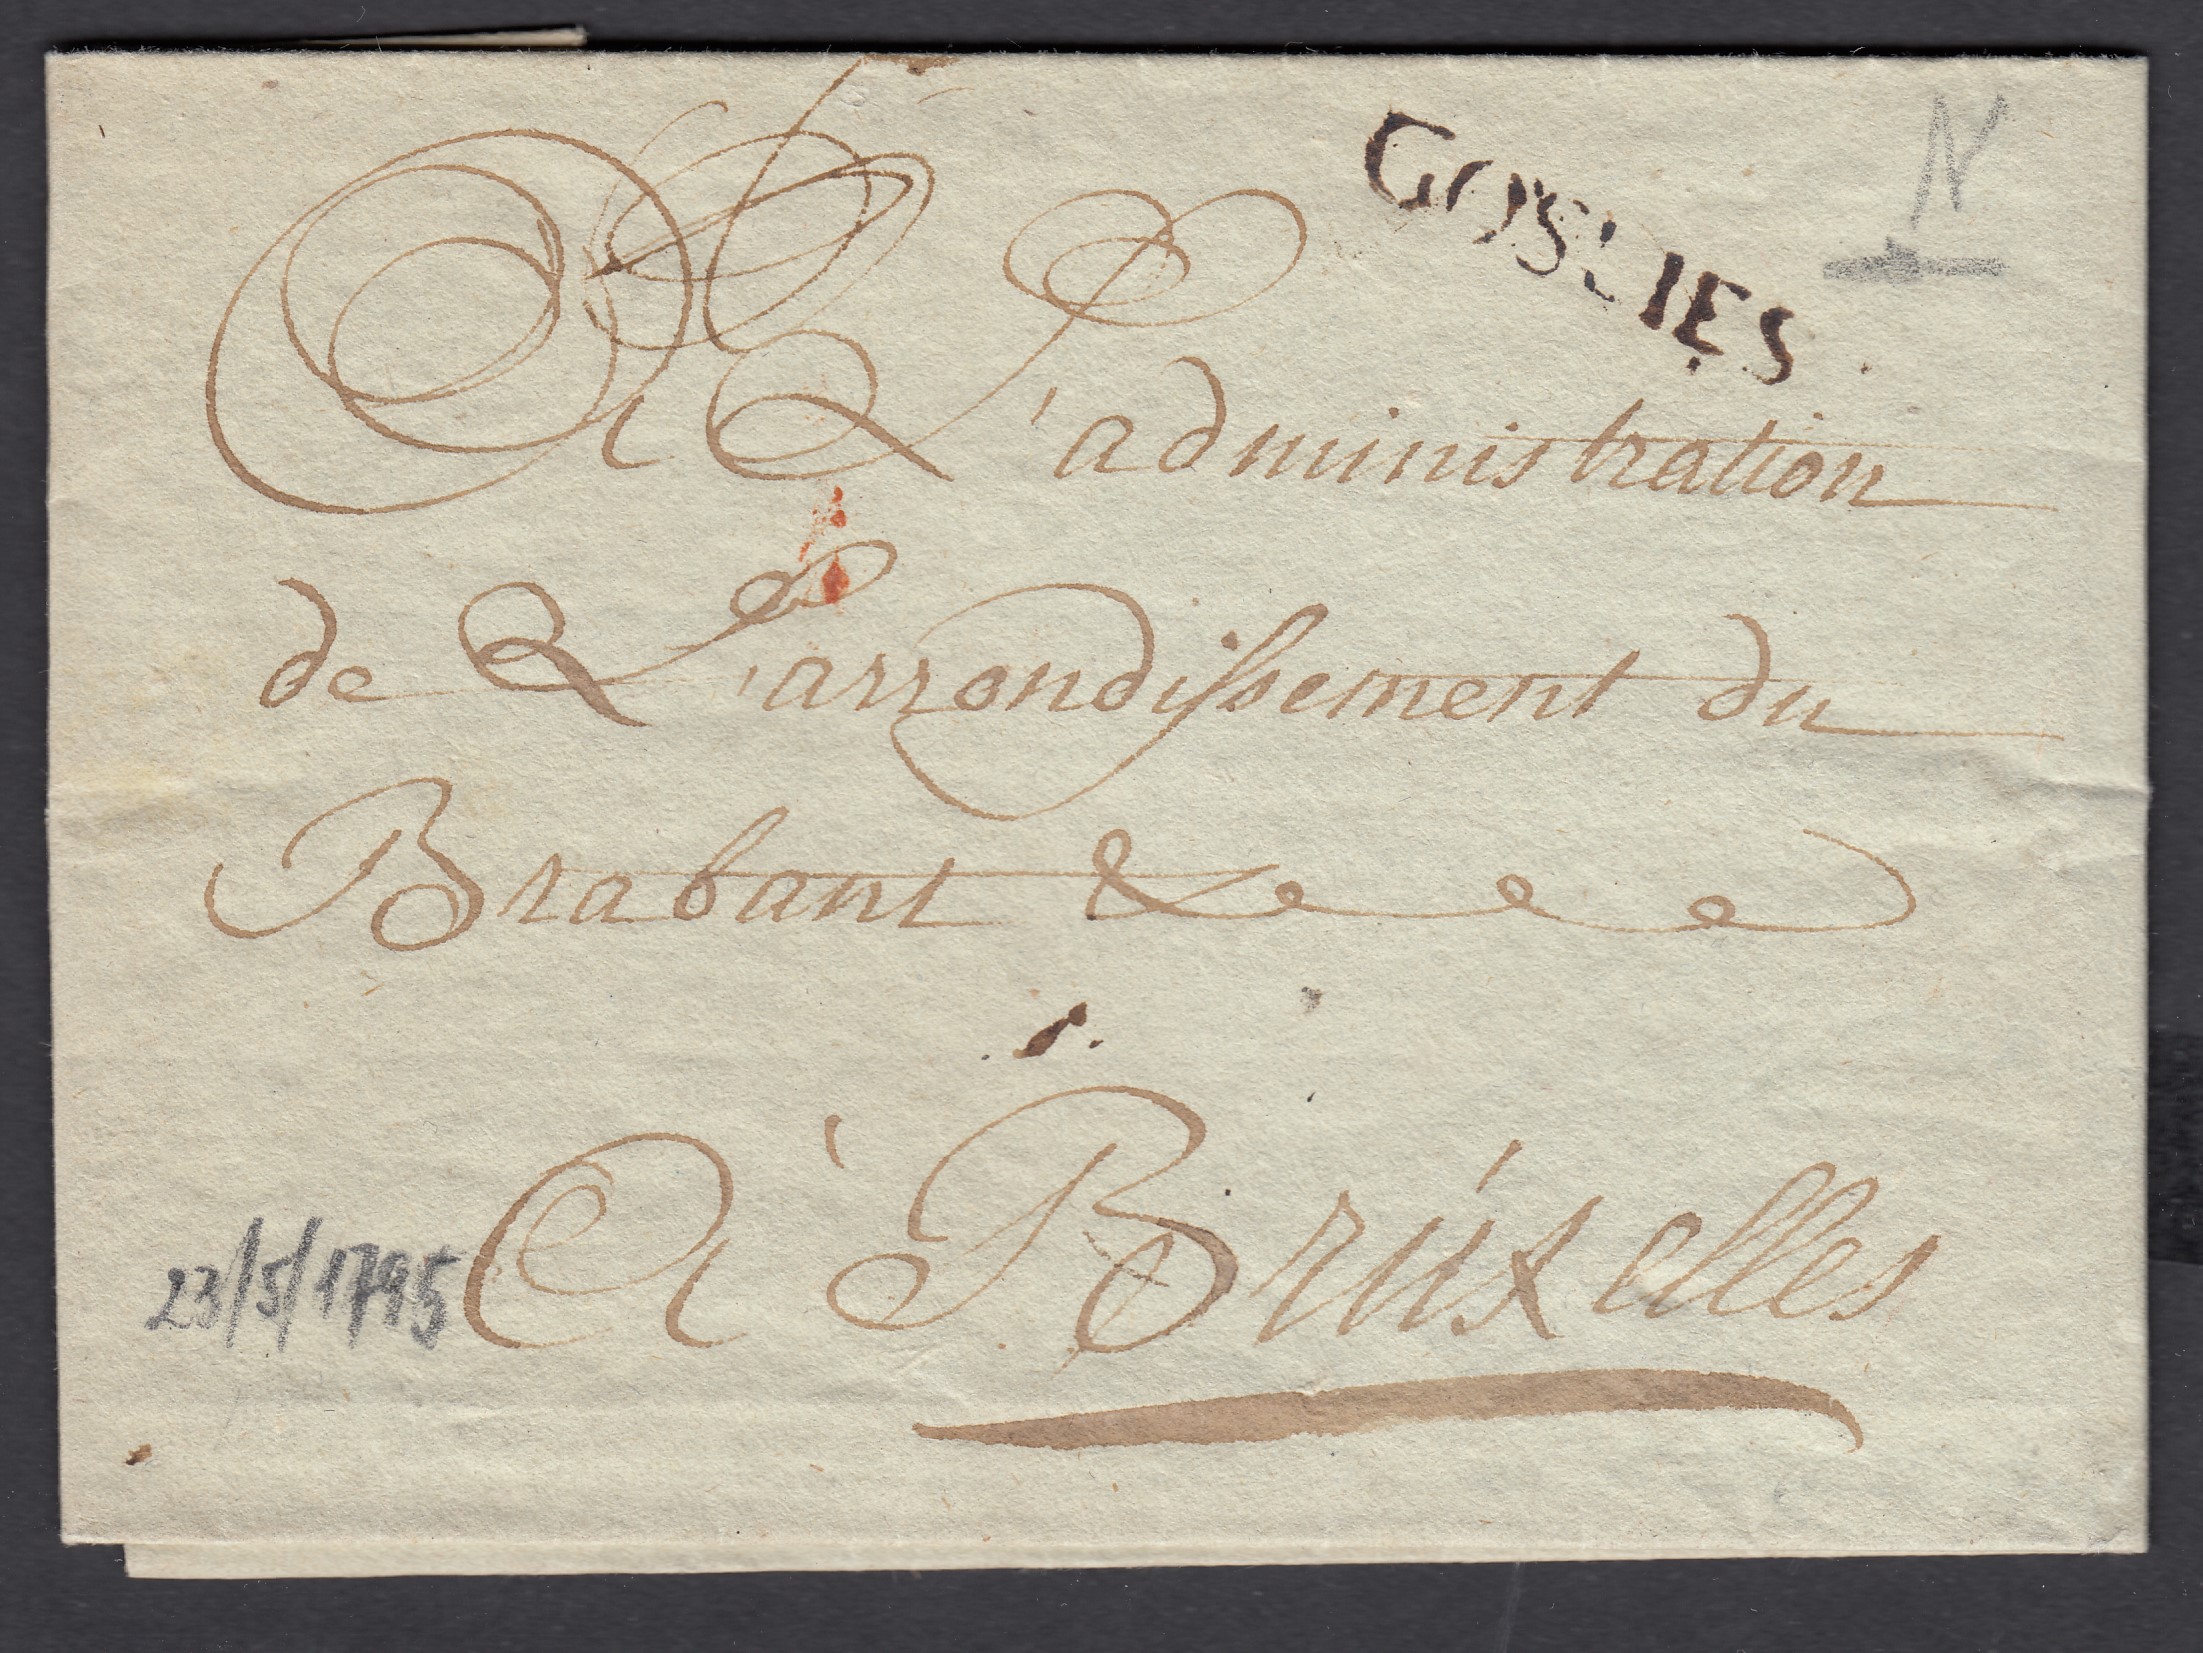 GOSLIES
N
A L'administration
de L'arrondissement du
Brabant &c c c
à Brúxelles
23/5/1795